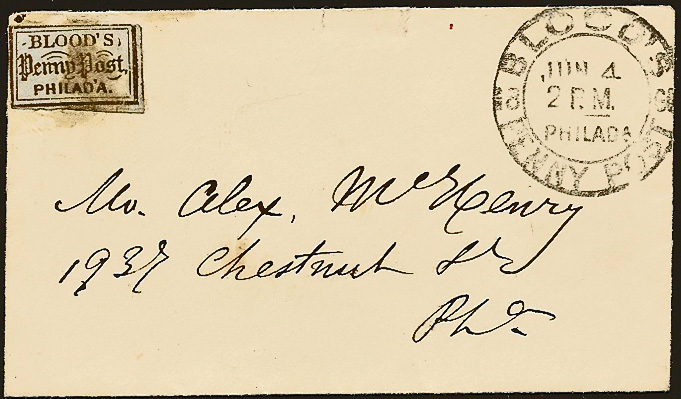 BLOOD'S
Penny Post,
PHILAD'A.
BLOOD'S
PENNY POST
JUN 4
2 P.M.
PHILADA
Mr. Alex, McHenry
1937 Chestnut St
Pha